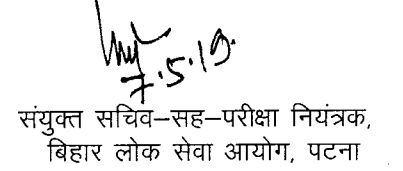 7.5.19.
संयुक्त सचिव–सह–परीक्षा नियंत्रक,
बिहार लोक सेवा आयोग, पटना